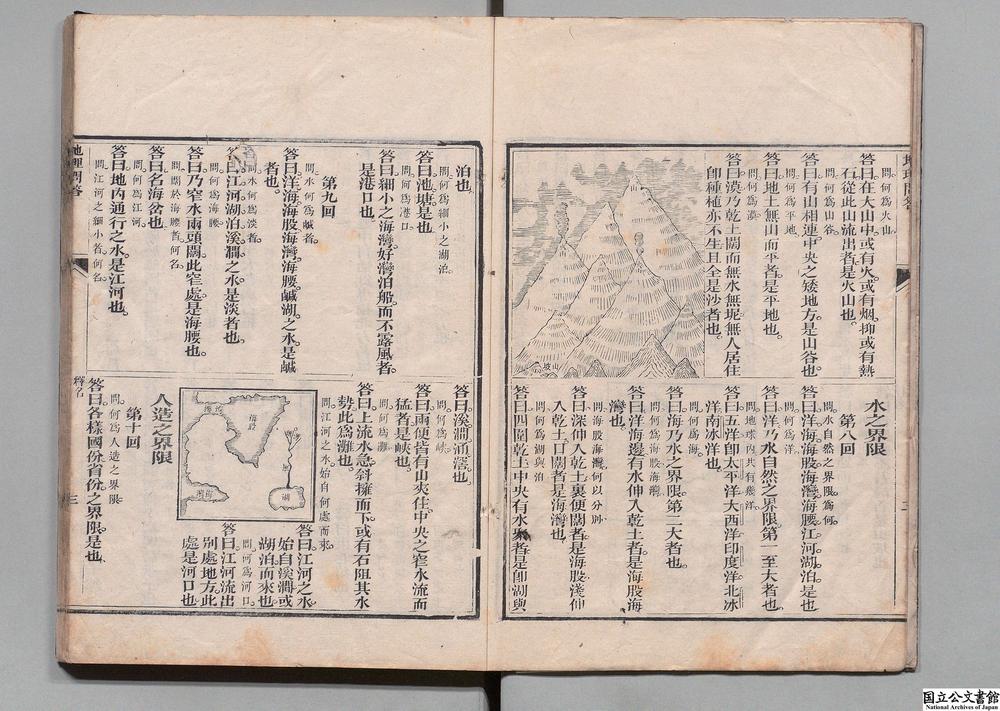 問何爲火山
答曰在大山中或有火或有烟抑或有熱
石從此山流出者是火山也
問何爲山谷
答曰有山相連中央之矮地方是山谷也
問何爲平地
答曰地土無山而平者是平地也
問何爲漠
答曰漠乃乾土闊而無水無坭無人居住
卽種植亦不生且全是沙者也
水之界限
第八回
問水自然之界限爲何
答曰洋海海股海灣海腰江河湖泊是也
問何爲洋
答曰洋乃水自然之界限第一至大者也
問地球內共有幾洋
答曰五洋卽太平洋大西洋印度洋北冰
洋南冰洋也
問何爲海
答曰海乃水之界限第二大者也
問何爲海股海灣
答曰洋海邊有水伸入乾土者是海股海
灣也
問海股海灣何以分別
答曰深伸入乾土裏便闊者是海股淺伸
入乾土口闊者是海灣也
問何爲湖與泊
答曰四圍乾土中央有水聚者是卽湖與
泊也
問何爲細小之湖泊
答曰池塘是也
問何爲港口
答曰細小之海灣好灣泊船而不露風者
是港口也
第九回
問水何爲鹹者
答曰洋海海股海灣海腰鹹湖之水是鹹
者也
問水何爲淡者
答曰江河湖泊溪澗之水是淡者也
問何爲海腰
答曰乃窄水兩頭闊此窄處是海腰也
問關於海腰者何名
答曰名海岔也
問何爲江河
答曰地內通行之水是江河也
問江河之細小者何名
地理問答
三
答曰溪澗涌滘也
問何爲峽
答曰兩便皆有山夾住中央之窄水流而
猛者是峽也
問何爲灘
答曰上流水急斜擁而下或有石阻其水
勢此爲灘也
問江河之水始自何處而來
答曰江河之水
始自溪澗或
湖泊而來也
問何爲河口
答曰江河流出
別處地方此
處是河口也
海股
湖
人造之界限
第十回
問何爲人造之界限
答曰各樣國份省份之界限是也
釋名
国立公文書館
National Archives of Japan